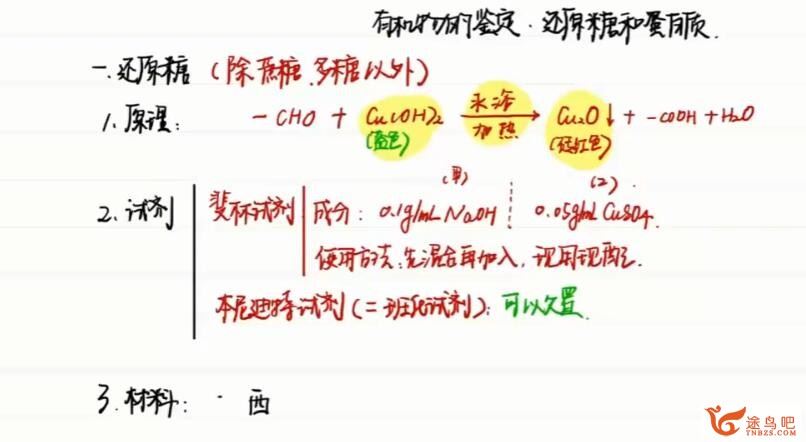 有机物的鉴定·还原糖和蛋白质.
一.还原糖（除蔗糖、多糖以外）
1.原理: -CHO + Cu(OH)₂ 水浴 加热 → Cu₂O↓ + -COOH + H₂O
(蓝色) (砖红色)
(甲) (乙)
2.试剂 斐林试剂 成分: 0.1g/mL NaOH 0.05g/mL CuSO₄.
使用方法:先混合再加入,现用现配.
本尼迪特试剂(=班氏试剂): 可以久置.
3.材料: · 西
途鸟吧
TNBZS.COM